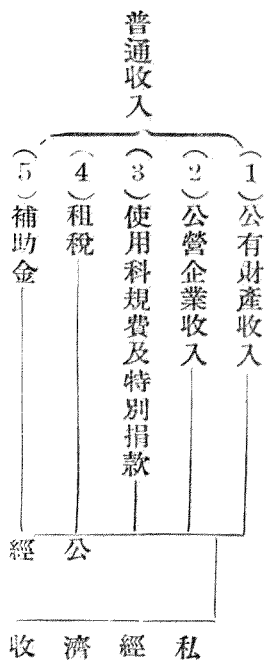 普通收入
(1)公有財產收入
(2)公營企業收入
(3)使用科規費及特別捐款
(4)租稅
(5)補助金
公經
私經濟收